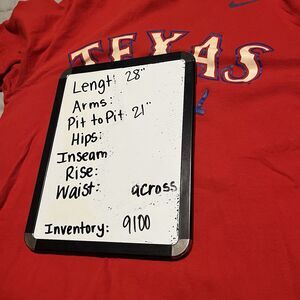 TEXAS
Lengt: 28"
Arms:
Pit to Pit 21"
Hips:
Inseam
Rise:
Waist: across
Inventory: 9100